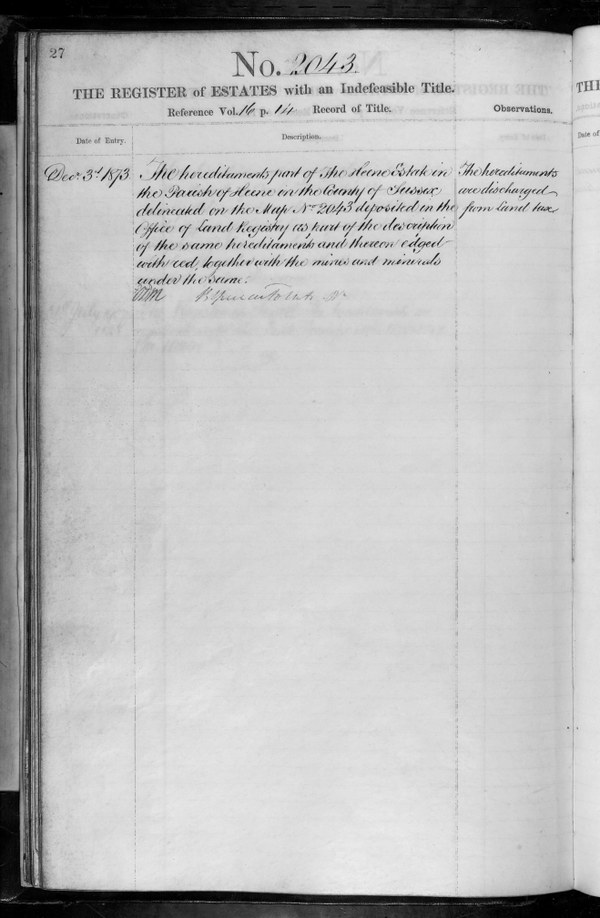 27
No. 2043.
THE REGISTER of ESTATES with an Indefeasible Title.
Reference Vol. 16 p. 14 Record of Title.
Observations.
Date of Entry.
Description.
Decr. 3rd 1873
The hereditaments part of The Heene Estate in
the Parish of Heene in the County of Sussex
delineated on the Map No. 2043 deposited in the
Office of Land Registry as part of the description
of the same hereditaments and thereon edged
with red, together with the mines and minerals
under the same.
The hereditaments
are discharged
from Land tax
THE
Date of